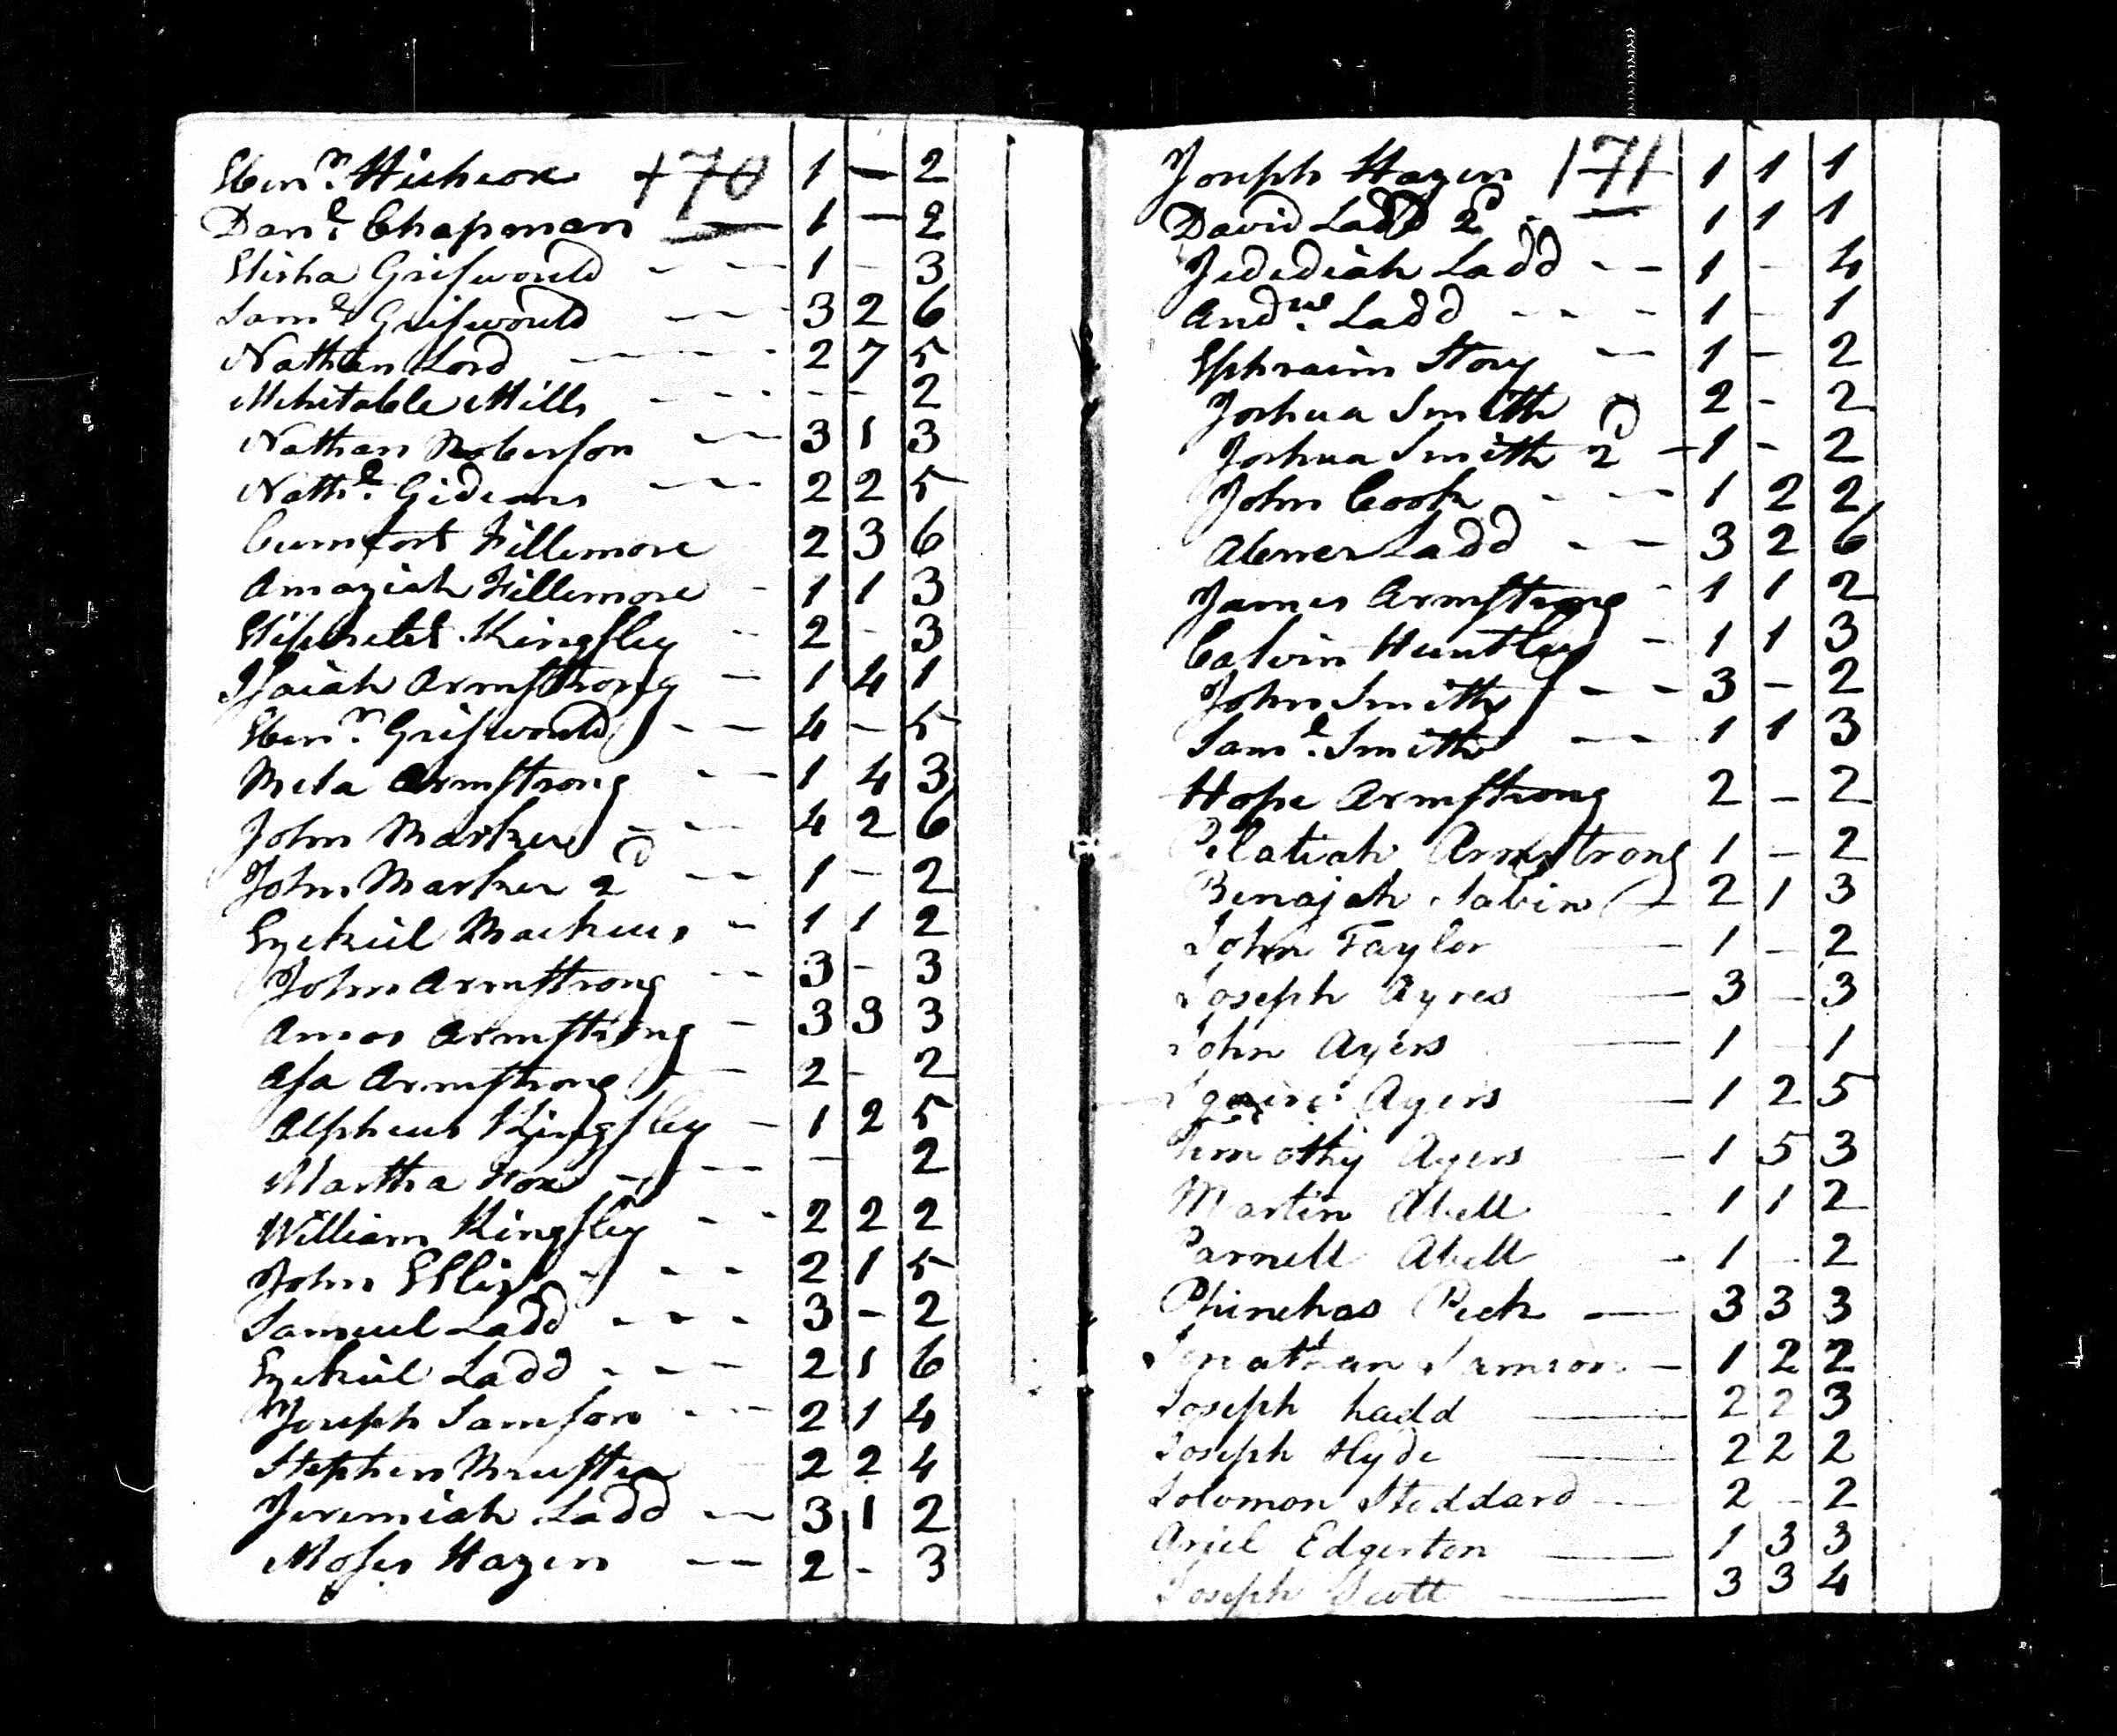 Eben.r Hickcox 170 1 — 2
Dan.l Chapman — 1 — 2
Elisha Grifwould - - - 1 - 3
Sam.l Grifwould - - - 3 2 6
Nathan Lord - - - 2 7 5
Mehitable Mills - - - - - 2
Nathan Roberson - - - 3 1 3
Nath.l Gideons - - - 2 2 5
Cumfort Fillemore 2 3 6
Amaziah Fillemore - 1 1 3
Elipehelet Kingsley - - 2 - 3
Isaiah Armstrong - 1 4 1
Eben.r Grifwould - - - 4 - 5
Armstrong - - - 1 4 3
John Barker - - - 4 2 6
John Barker 2d - - 1 - 2
Ezekiel - 1 1 2
John Armstrong - - 3 - 3
Amos Armstrong - 3 3 3
Asa Armstrong - - 2 - 2
Alpheus Kingsley - 1 2 5
Martha Fox - - - — 2
William Kingsley - - 2 2 2
John Ellis - - - 2 1 5
Samuel Ladd - - - 3 - 2
Ezekiel Ladd - - - 2 1 6
Joseph Samson - - - 2 1 4
Stephen Brewster 2 2 4
Jeremiah Ladd - - 3 1 2
Moses Hazen - - 2 - 3
Joseph Hazen 171 1 1 1
David Ladd 2d - — 1 1 1
Jedediah Ladd - - 1 - 4
And.rw Ladd - - - 1 - 1
Ephraim Story — 1 - 2
Joshua Smith 2 - 2
Joshua Smith 2d - 1 - 2
John Cook - - - 1 2 2
Abner Ladd - - 3 2 6
James Armstrong - 1 1 2
Calvin Huntley - 1 1 3
John Smith - - 3 - 2
Sam.l Smith - - 1 1 3
Hope Armstrong 2 - 2
Pelatiah Armstrong 1 - 2
Benajah Sabin - 2 1 3
John Taylor — 1 - 2
Joseph Ayres — 3 - 3
John Ayers — 1 - 1
Squire Ayers — 1 2 5
Timothy Ayers — 1 5 3
Martin Abell - 1 1 2
Parnell Abell - 1 - 2
Phinehas Peck — 3 3 3
Jonathan Samson - 1 2 2
Joseph Ladd — 2 2 3
Joseph Hyde — 2 2 2
Solomon Steddard — 2 - 2
Ariel Edgerton — 1 3 3
Joseph Scott — 3 3 4